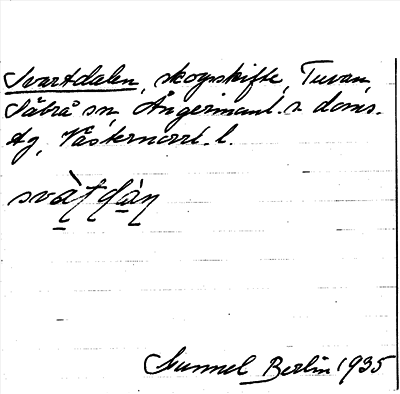 Svartdalen, skogsskifte, Tuvan,
Säbrå sn, Ångermanl. s doms.
Ag, Västernorrl. l.
Gunnel Berlin 1935